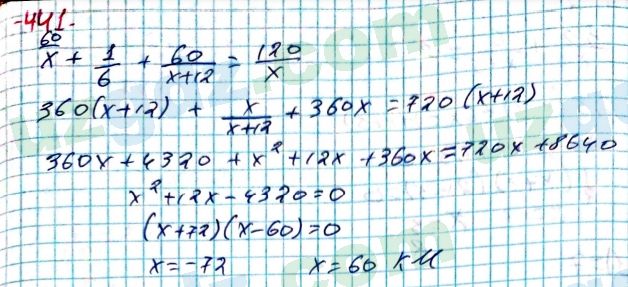 441.
60/x + 1/6 + 60/(x+12) = 120/x
360(x+12) + x/(x+12) + 360x = 720(x+12)
360x + 4320 + x² + 12x + 360x = 720x + 8640
x² + 12x - 4320 = 0
(x+72)(x-60) = 0
x = -72 x = 60 км